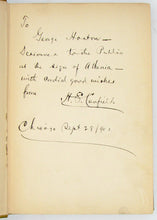 To
George Horton —
Servant to the Public
at the sign of Athenia —
with cordial good wishes
from
H. E.
Chicago Sept 28/901